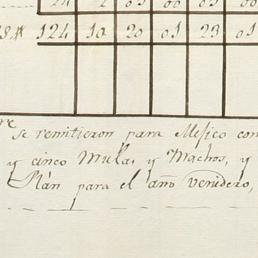 124 10 20 01 23 01
re se remitieron para Mexico con
y cinco Mulas y Machos, y
Plán para el año venidero,